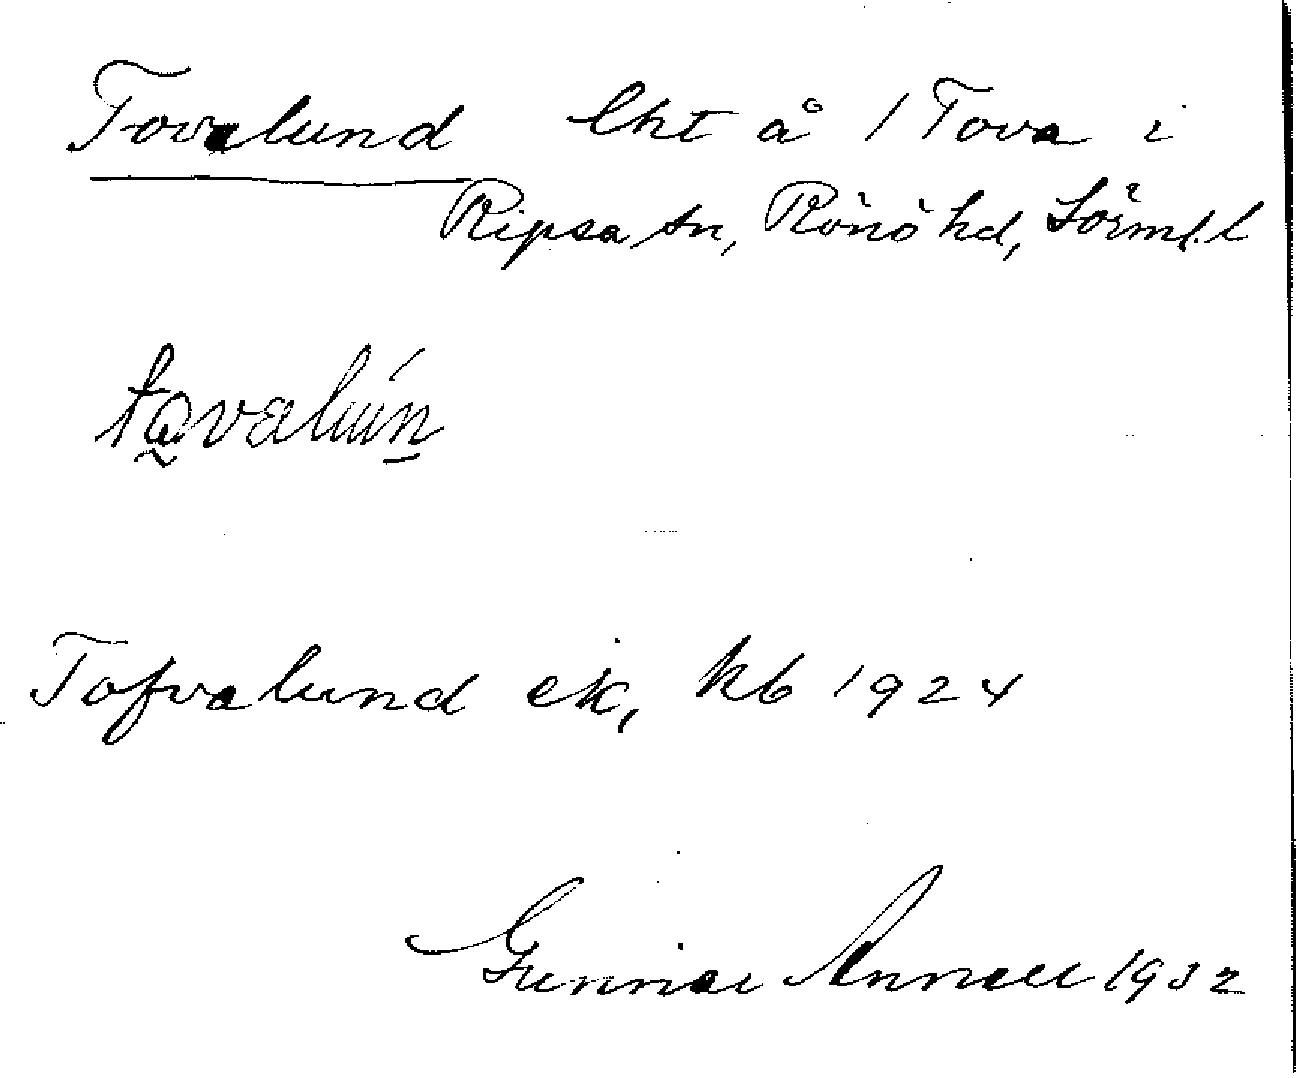 Tovalund lht å 1 Tova i
Ripsa sn, Rönö hd, Sörml. l
Tofvalund ek, kb 1924
Gunnar Annell 1932